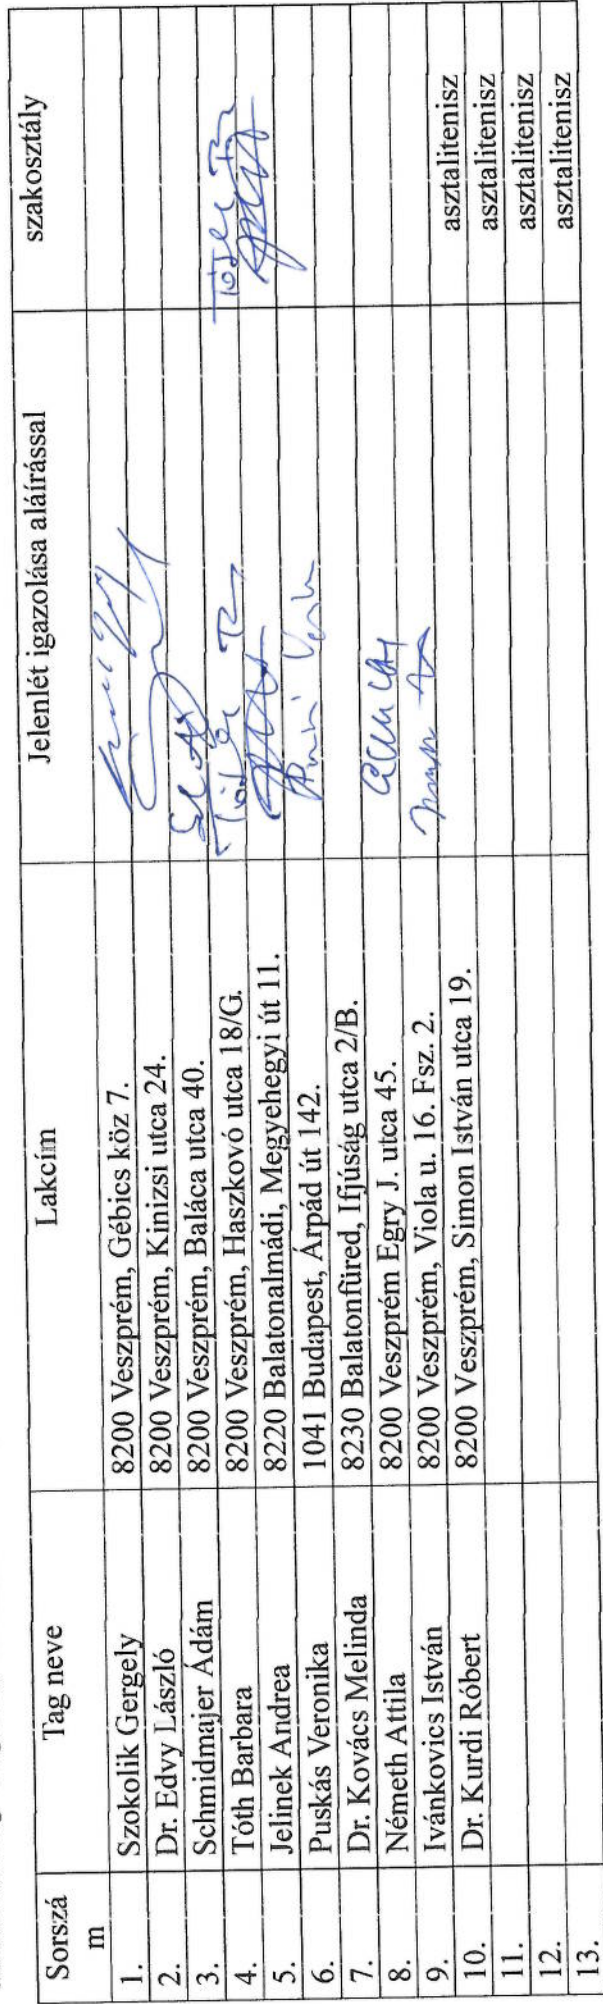 Sorszám Tag neve Lakcím Jelenlét igazolása aláírással szakosztály
1. Szokolik Gergely 8200 Veszprém, Gébics köz 7.
2. Dr. Edvy László 8200 Veszprém, Kinizsi utca 24.
3. Schmidmajer Ádám 8200 Veszprém, Baláca utca 40.
4. Tóth Barbara 8200 Veszprém, Haszkovó utca 18/G.
5. Jelinek Andrea 8220 Balatonalmádi, Megyehegyi út 11.
6. Puskás Veronika 1041 Budapest, Árpád út 142.
7. Dr. Kovács Melinda 8230 Balatonfüred, Ifjúság utca 2/B.
8. Németh Attila 8200 Veszprém Egry J. utca 45.
9. Ivánkovics István 8200 Veszprém, Viola u. 16. Fsz. 2.
10. Dr. Kurdi Róbert 8200 Veszprém, Simon István utca 19. asztalitenisz
11. asztalitenisz
12. asztalitenisz
13. asztalitenisz